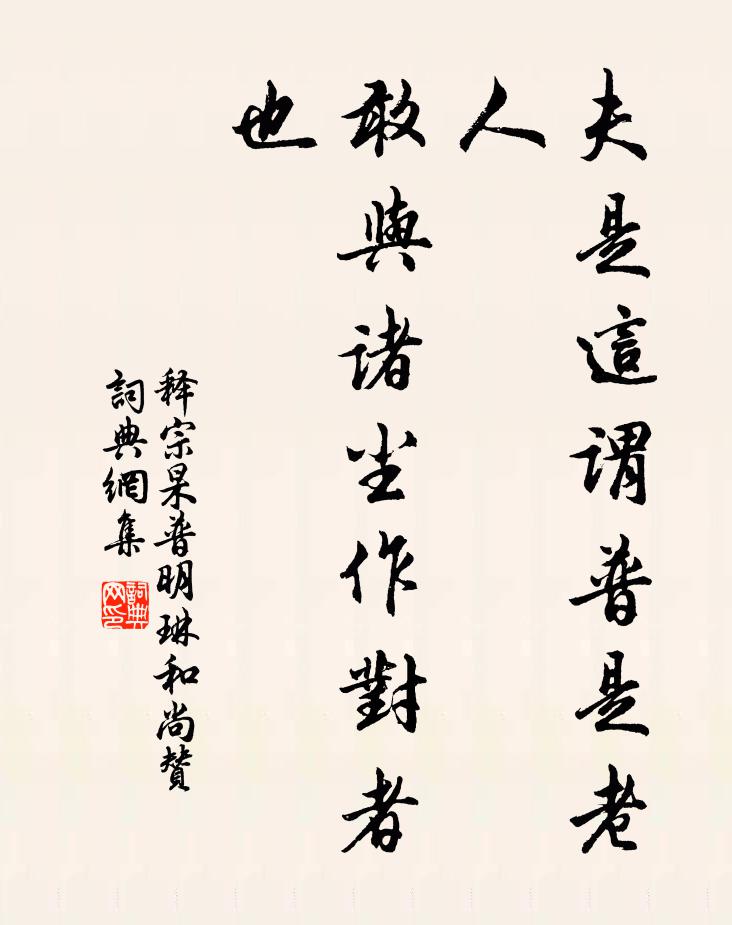 夫是這謂普是老
人
敢與諸尘作對者
也
释宗杲普明琳和尚贊
詞典網集
詞典
网印